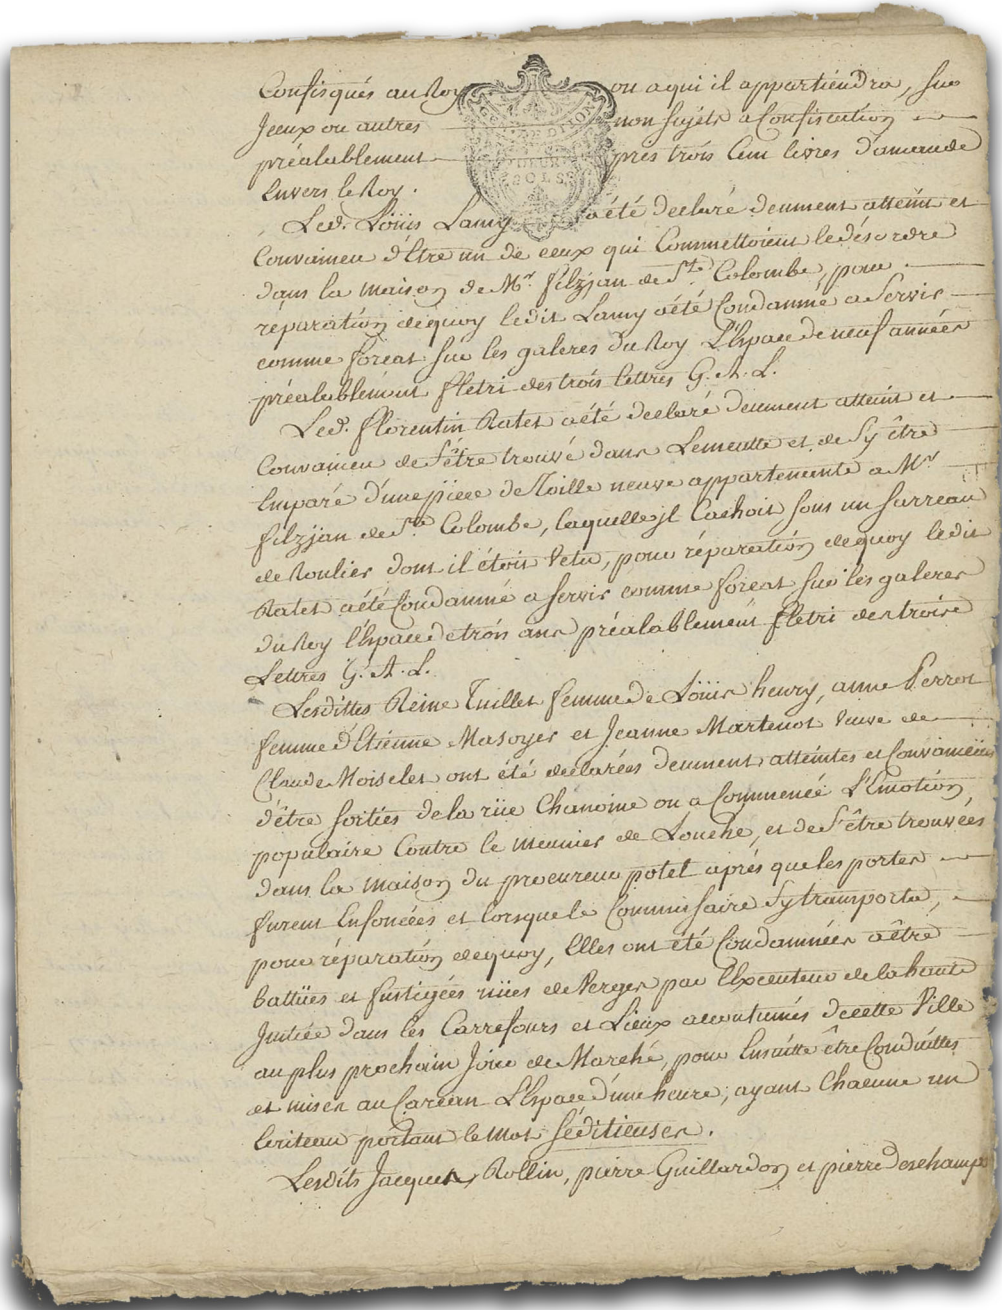 Confisqués au Roy ou a qui il appartiendra, sur
Jceux ou autres non sujets a Confiscation
préalablement pres trois Cent livres d'amande
Envers le Roy.
GEN DE DIJON
SOLS
Led. Loüis Lamy a été declaré deument atteint et
Convaincu d'Etre un de ceux qui Commettoient le désordre
dans la maison de Mr. filzjan de Ste. Colombe, pour
réparation de quoy ledit Lamy a été Condamné a Servir
comme forcat sur les galeres du Roy L'Espace de neuf années
préalablement fletri des trois lettres G. A. L.
Led. florentin Ratet a été declaré deument atteint et
Convaincu de S'être trouvé dans Lemeutte et de Sy être
Emparé d'une piëce de Toille neuve appartenante a Mr
filzjan de Ste Colombe, laquelle jl Cachoit sous un sarreau
de Roulier dont il étoit Vetu, pour réparation de quoy ledit
Ratet a été Condamné a servir comme forcat sur les galeres
du Roy l'Espace de trois ans préalablement fletri des troise
Lettres G. A. L.
Lesdittes Reine Tuillet femme de Loüis henry, anne Perrot
femme d'Etienne Masoyer et Jeanne Martenot Veuve de
Claude Moiselet ont été declarées deument atteintes et Convaincües
d'être sorties de la rüe Chanoine ou a Commencé L'Emotion
populaire Contre le meunier de Louche, et de S'être trouvées
dans la maison du procureur potel aprés que les portes
furent Enfoncées et lorsque le Commissaire Sy transporta,
pour réparation de quoy, Elles ont été Condamnées a être
battües et fustigées nües de Verges par l'Executeur de la haute
Justice dans les Carrefours et Lieux accoutumés de cette Ville
au plus prochain Jour de Marché, pour Ensuitte être Conduittes
et mises au Carcan L'Espace d'une heure, ayant Chacune un
Ecriteau portant le mot séditieuses.
Lesdits Jacques Rollin, pierre Guillardon et pierre deschamps